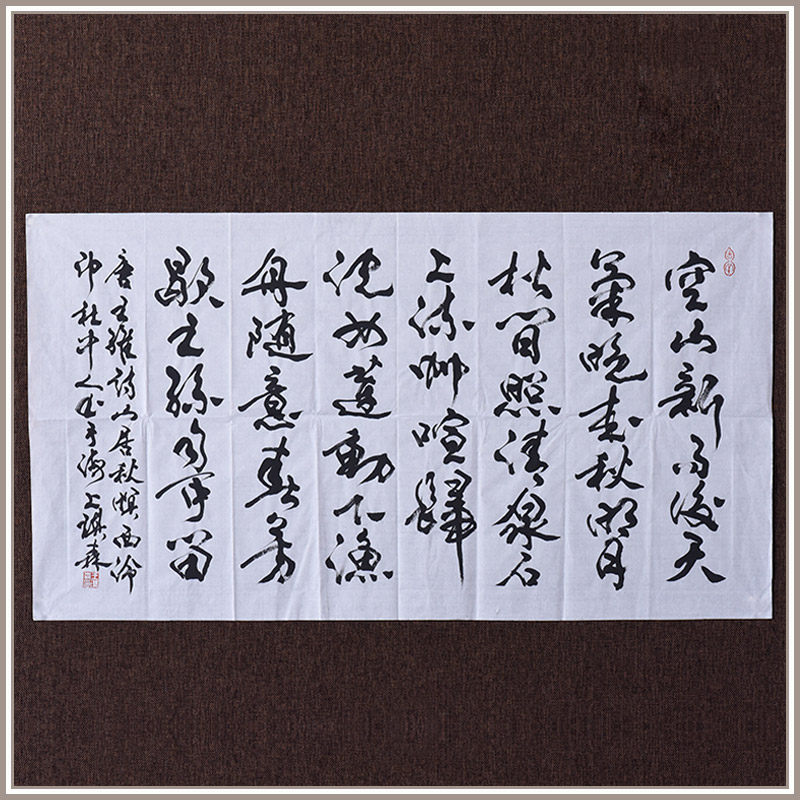 空山新雨後天
氣晚來秋明月
松間照清泉石
上流竹喧歸
浣女蓮動下漁
舟隨意春芳
歇王孫自可留
唐王維詩山居秋暝西泠
印社中人書於海上森